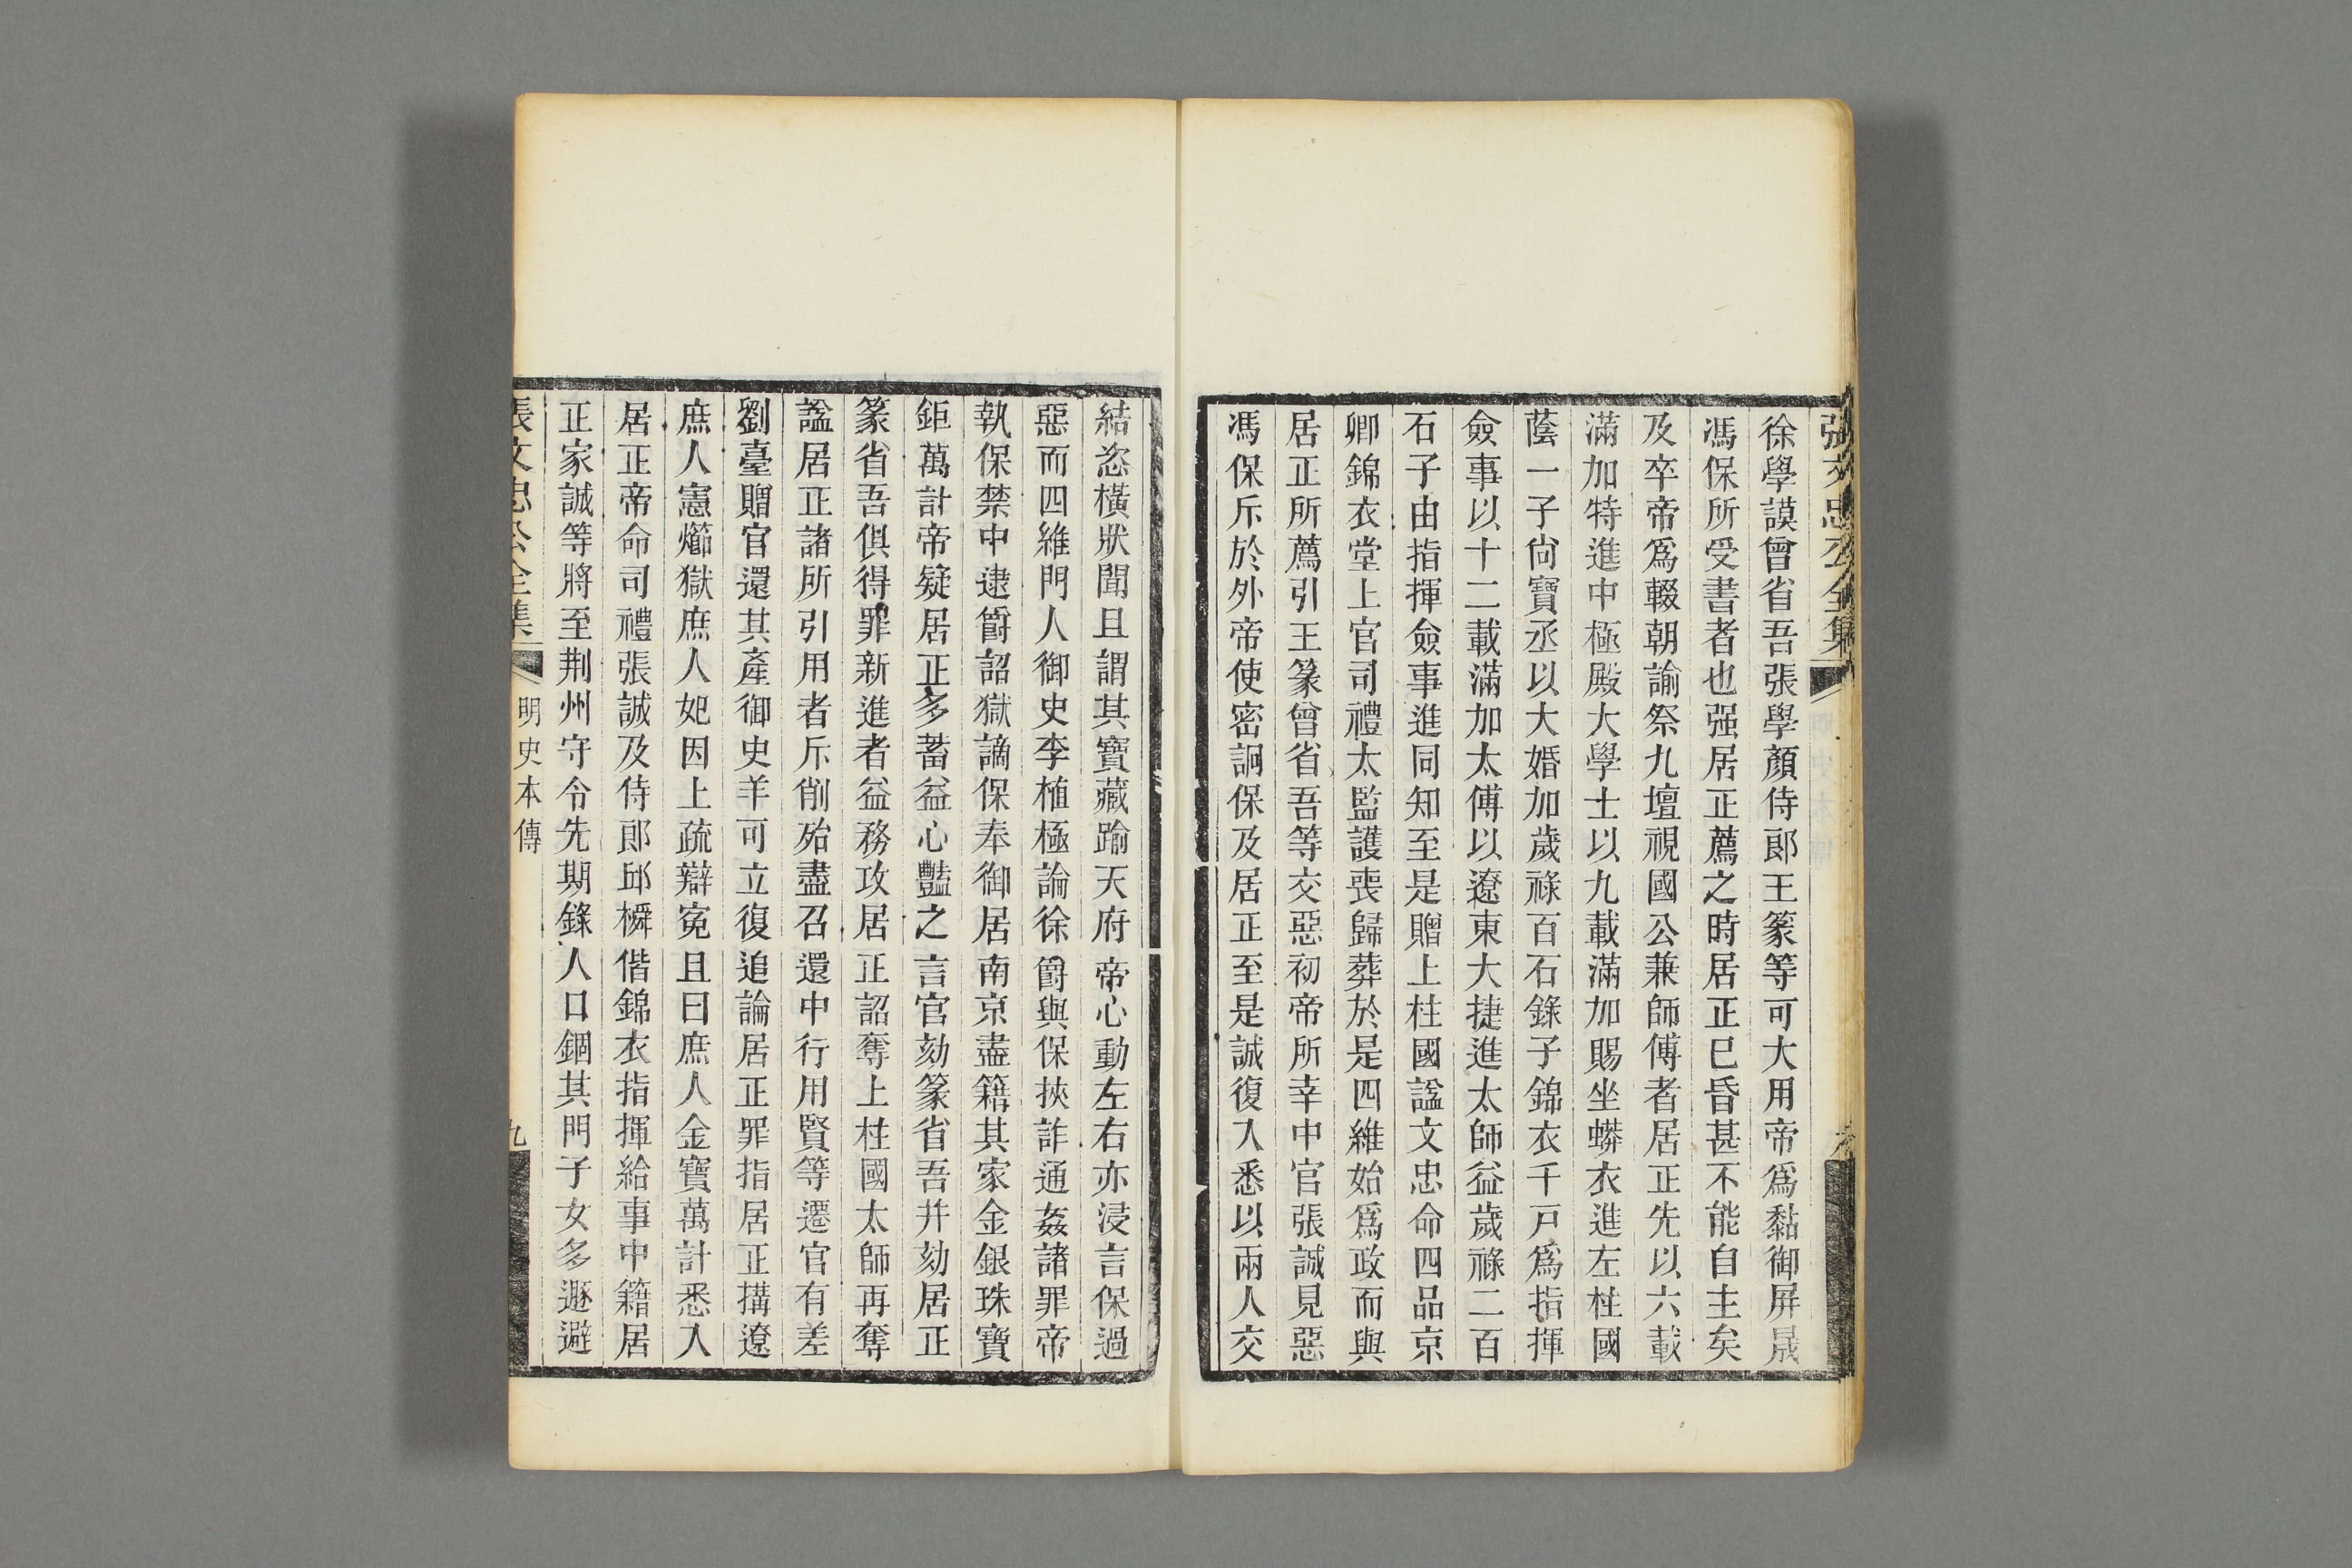 張文忠公全集
徐學謨曾省吾張學顏侍郎王篆等可大用帝爲黏御屏晟
馮保所受書者也强居正薦之時居正已昏甚不能自主矣
及卒帝爲輟朝諭祭九壇視國公兼師傅者居正先以六載
滿加特進中極殿大學士以九載滿加賜坐蟒衣進左柱國
蔭一子尙寶丞以大婚加歲祿百石錄子錦衣千戸爲指揮
僉事以十二載滿加太傅以遼東大捷進太師益歲祿二百
石子由指揮僉事進同知至是贈上柱國諡文忠命四品京
卿錦衣堂上官司禮太監護喪歸葬於是四維始爲政而與
居正所薦引王篆曾省吾等交惡初帝所幸中官張誠見惡
馮保斥於外帝使密詗保及居正至是誠復入悉以兩人交
結恣橫狀聞且謂其寶藏踰天府帝心動左右亦浸言保過
惡而四維門人御史李植極論徐爵與保挾詐通姦諸罪帝
執保禁中逮爵詔獄謫保奉御居南京盡籍其家金銀珠寶
鉅萬計帝疑居正多蓄益心豔之言官劾篆省吾并劾居正
篆省吾俱得罪新進者益務攻居正詔奪上柱國太師再奪
諡居正諸所引用者斥削殆盡召還中行用賢等遷官有差
劉臺贈官還其產御史羊可立復追論居正罪指居正搆遼
庶人憲㸅獄庶人妃因上疏辯寃且曰庶人金寶萬計悉入
居正帝命司禮張誠及侍郎邱橓偕錦衣指揮給事中籍居
正家誠等將至荆州守令先期錄人口錮其門子女多遯避
張文忠公全集
明史本傳
九